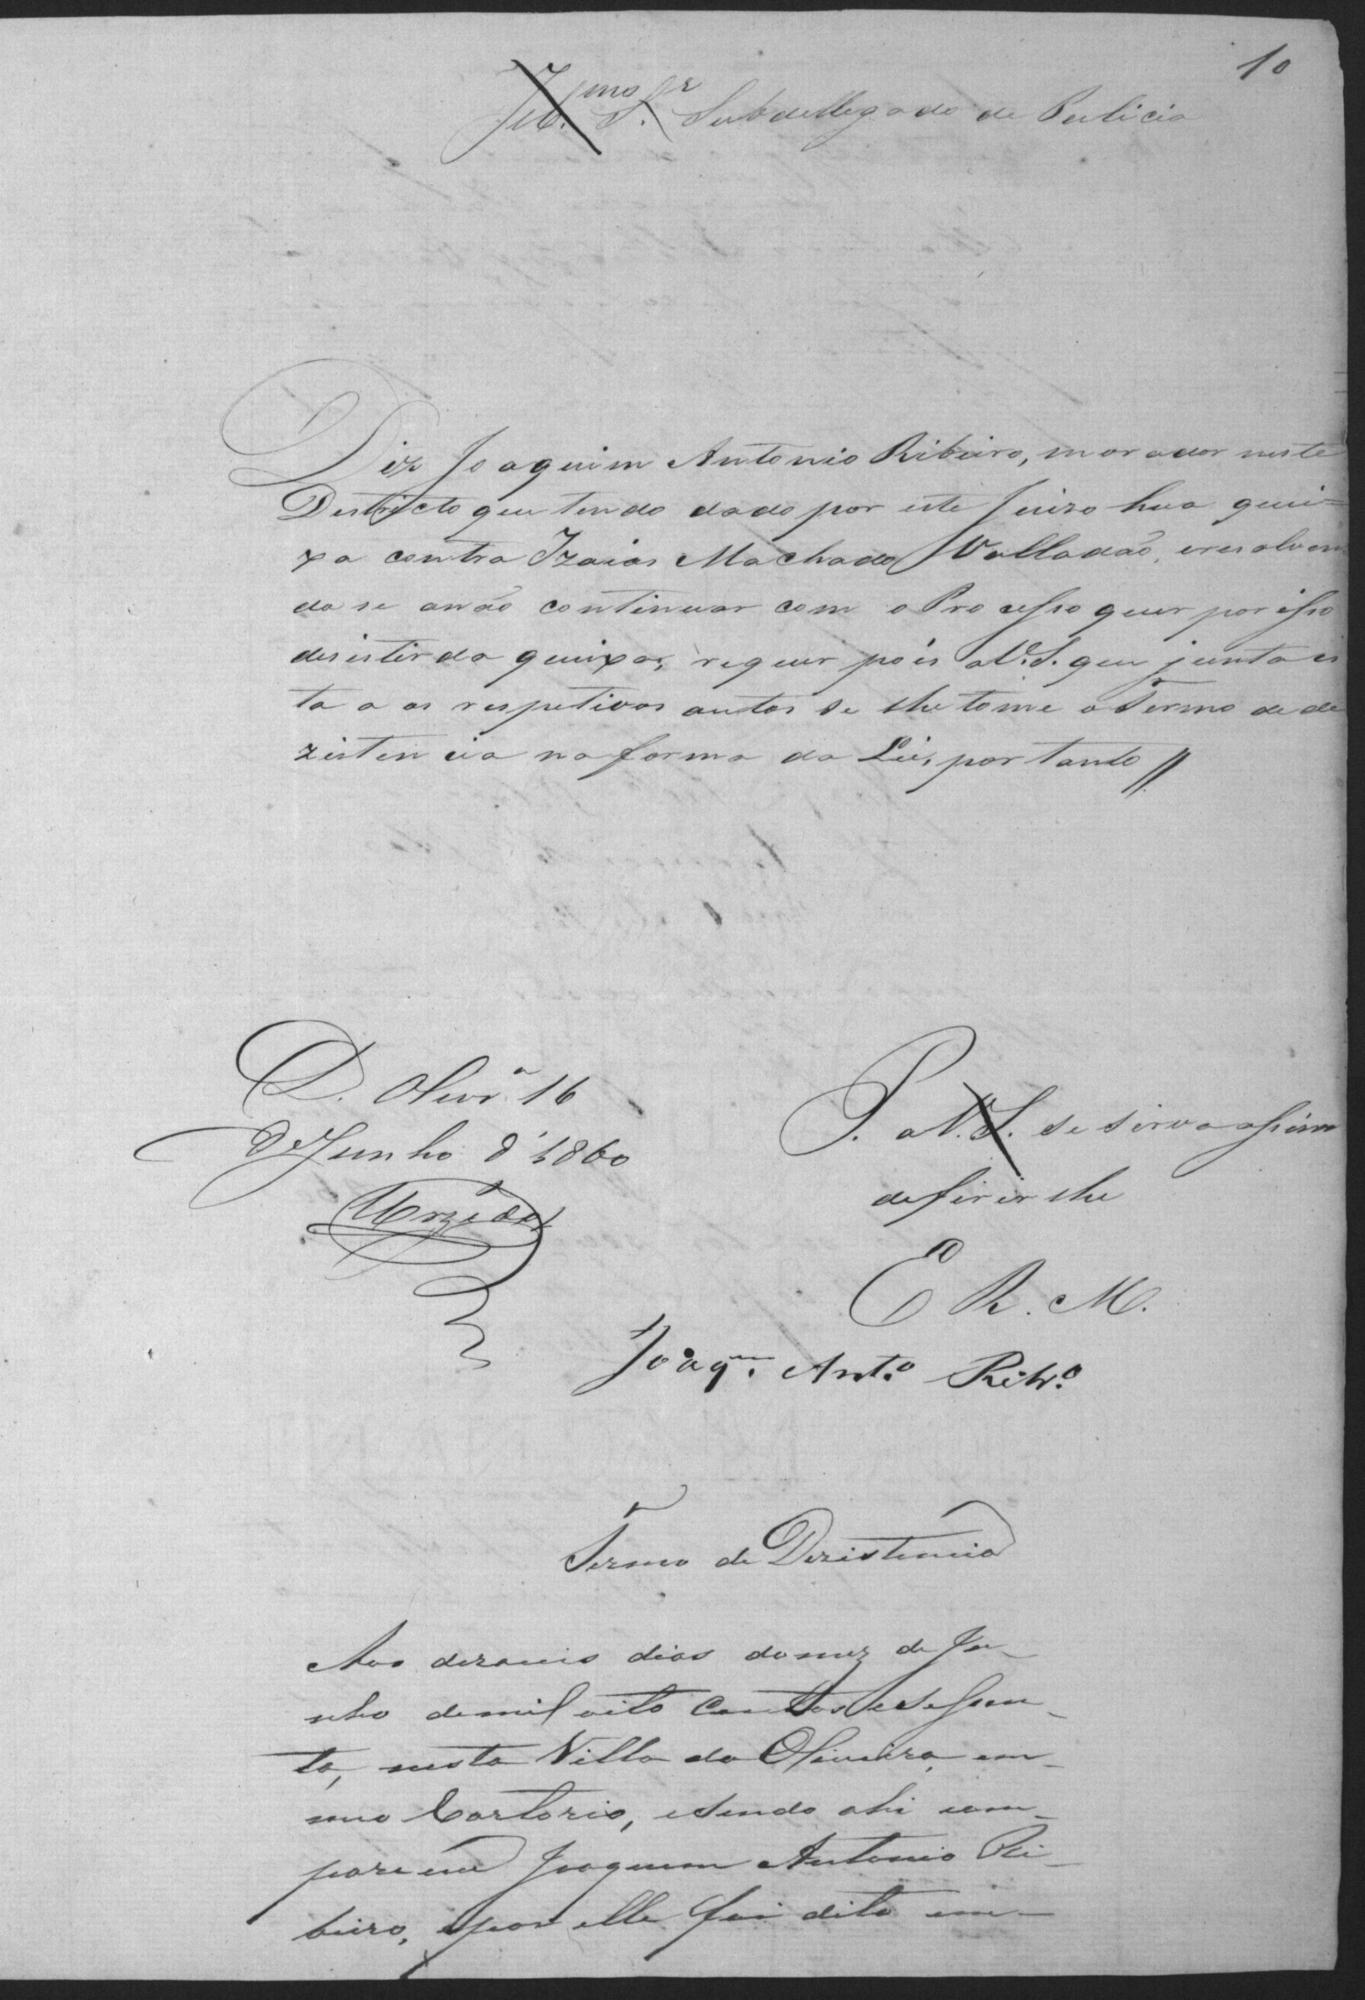 10
Ill.mo S.r Subdellegado de Policia
Diz Joaquim Antonio Ribeiro, morador neste
Destricto que tendo dado por este Juizo hua quei=
xa contra Izaias Machado Valladão, eresolven
do se anão continuar com o Processo quer por isso
desistir da queixa, requer pois a V.S. que junta es
ta a os respetivos autos se lhe tome o Termo de de
zistencia na forma da Lei, por tanto //
D. Olivr.a 16
de Junho d'1860
P. a V.S. se sirva assim
defirir lhe
E R. M.
Joaq.m Ant.o Ribr.o
Termo de Dezistencia
Aos dezaseis dias do mez de Ju_
nho de mil oito centos e sessen_
ta, nesta Villa da Oliveira, em_
meo Cartorio, e sendo ahi com_
pareceu Joaquim Antonio Ri_
beiro, e por elle foi dito em_